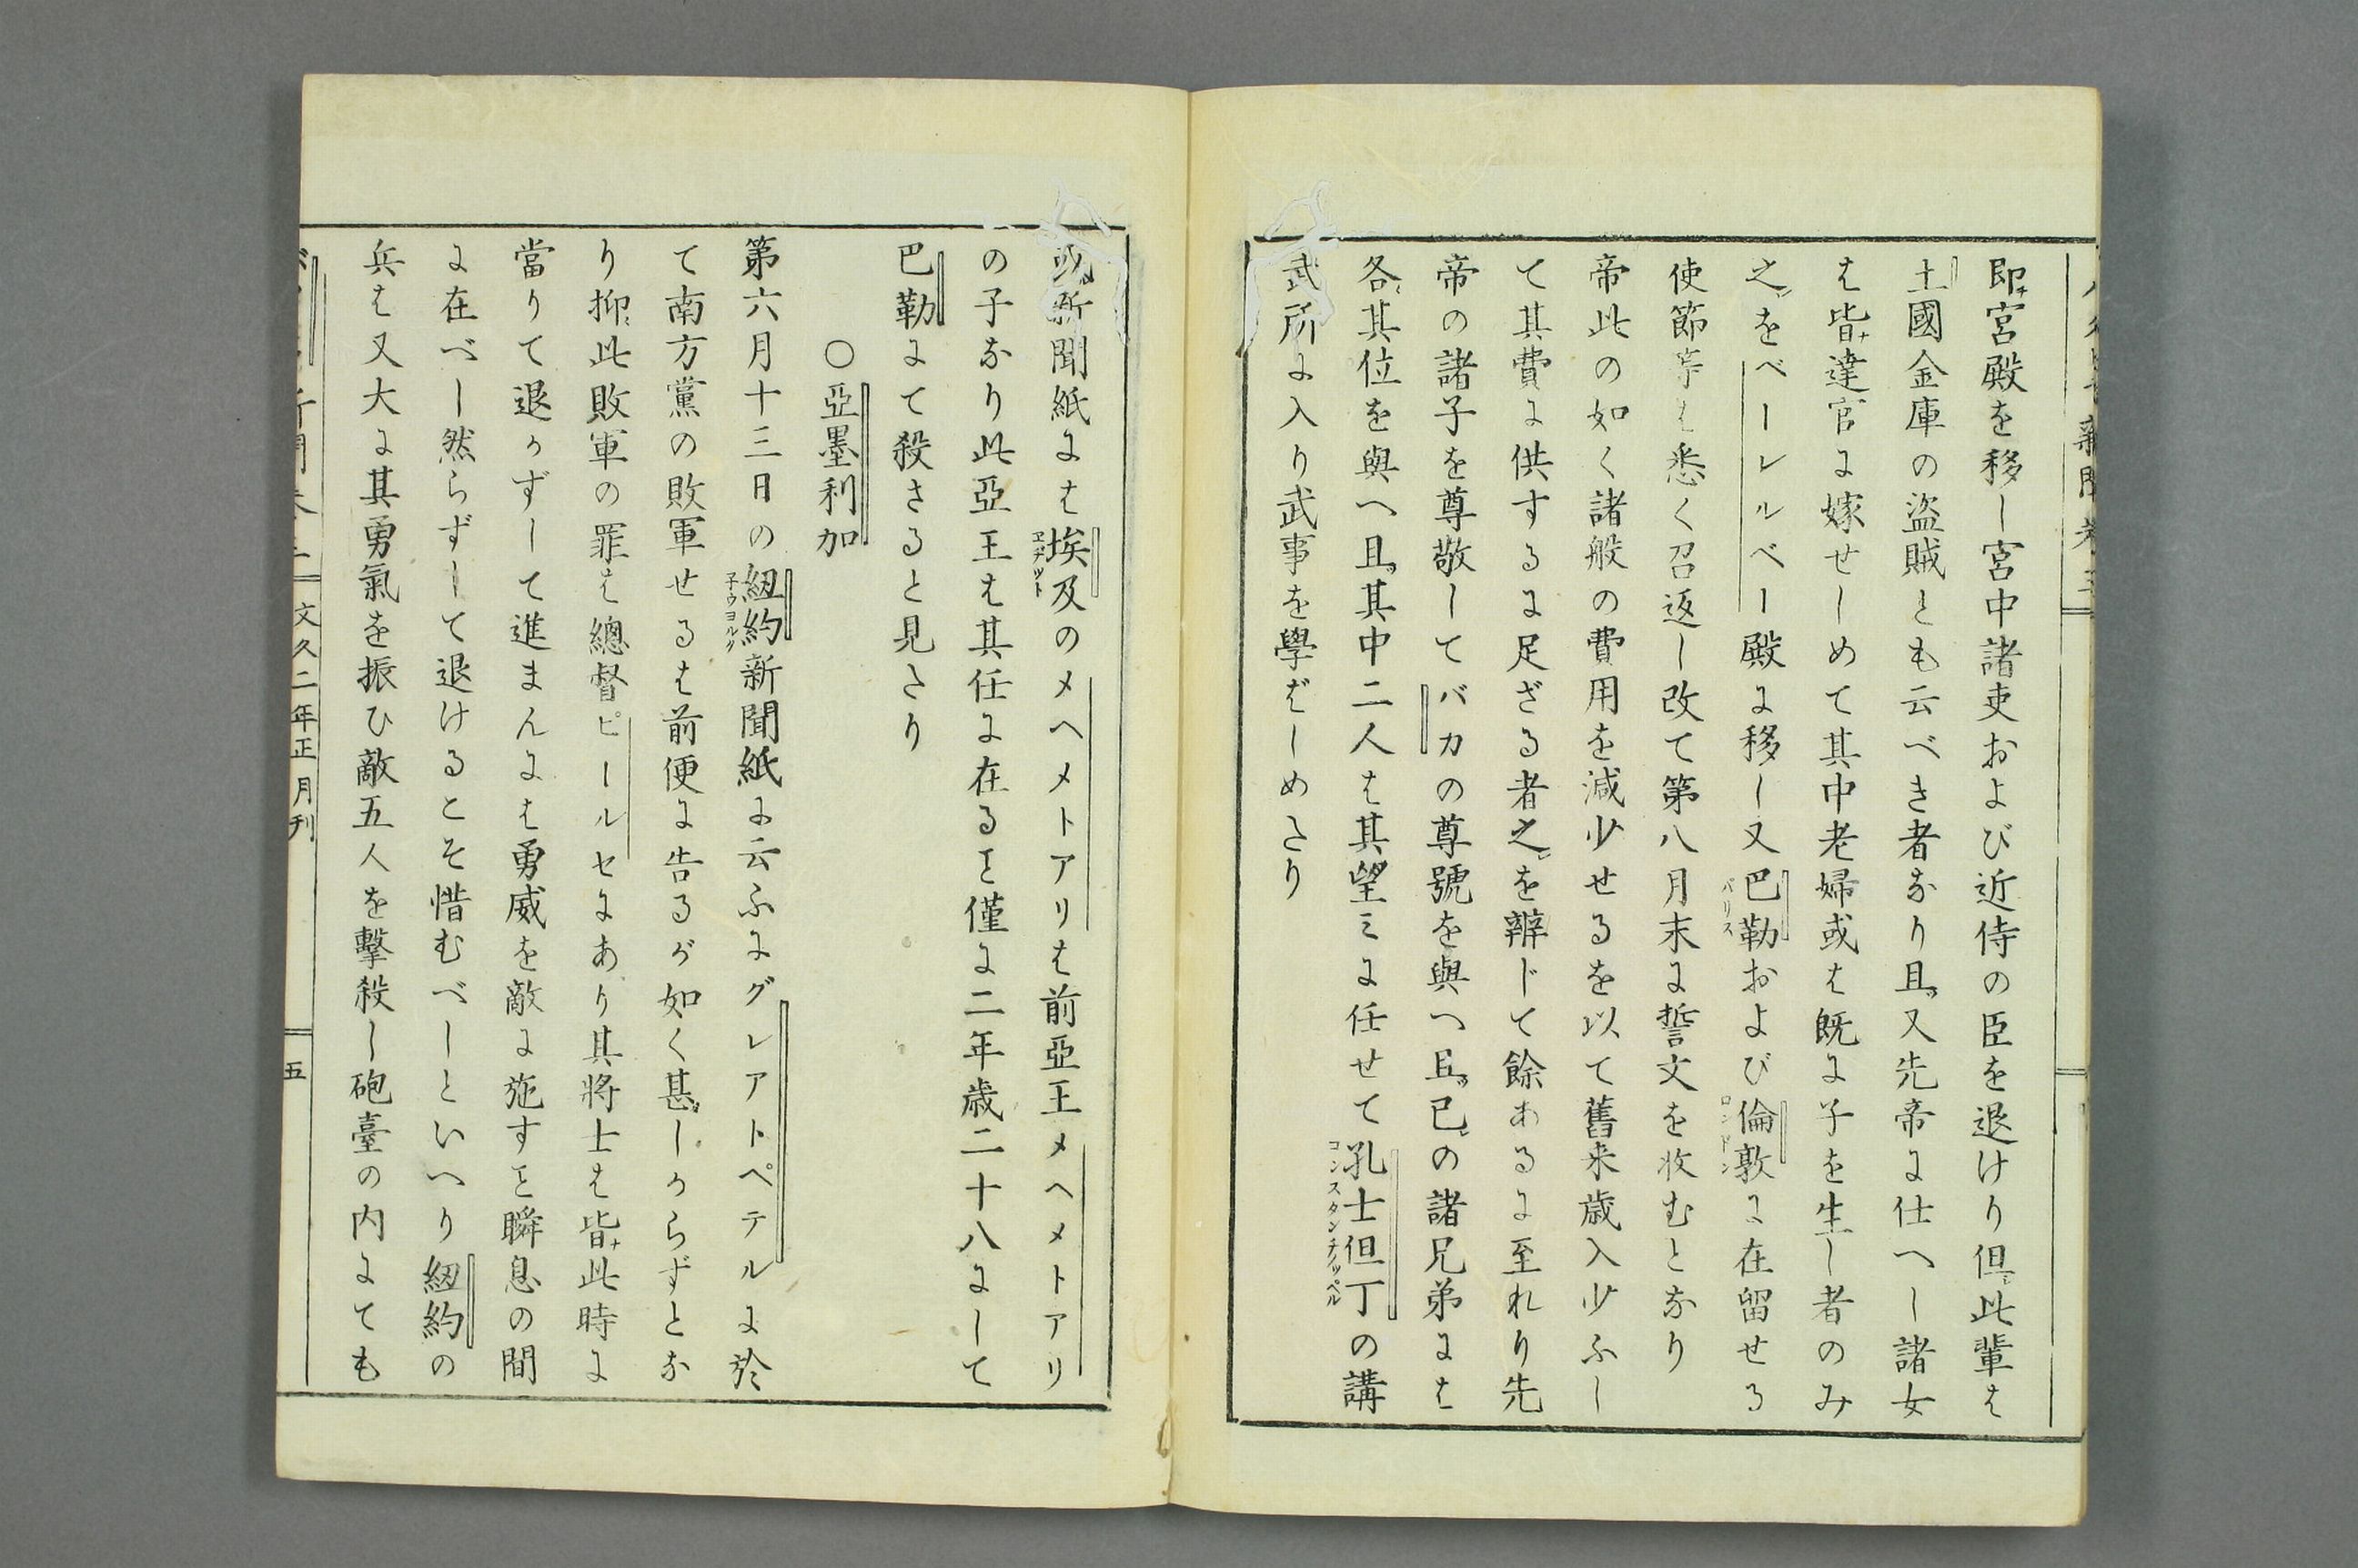 即チ宮殿を移し宮中諸吏および近侍の臣を退けり但シ此輩は
土國金庫の盗賊とも云べき者なり且ツ又先帝に仕へし諸女
は皆ナ達官に嫁せしめて其中老婦或は既に子を生し者のみ
之レをベーレルベー殿に移し又巴勒おより倫敦に在留せる
バリス
ロンドーン
使節等は悉く召返し改て第八月末に誓文を收むとなり
帝此の如く諸般の費用を減少せるを以て舊来歳入少ふし
て其費に供するに足ざる者之レを辨じて餘あるに至れり先
帝の諸子を尊敬してバカの尊號を與へ且ツ已の諸兄弟には
各其位を與へ且ツ其中二人は其望ミに任せて孔士但丁の講
コンスタンチノッペル
武所に入り武事を學ばしめたり
新聞紙には埃及のメヘメトアリは前亞王メヘメトアリ
エヂット
の子なり此亞王は其任に在るヿ僅に二年歳二十八にして
巴勒にて殺さると見たり
〇亞墨利加
第六月十三日の紐約新聞紙に云ふにグレアトペテルに於
子ウヨルク
て南方黨の敗軍せるは前便に告るが如く甚しからずとな
り抑此敗軍の罪は總督ピールセにあり其將士は皆ナ此時に
當りて退かずして進まんには勇威を敵に施すヿ瞬息の間
に在べし然らずして退けるこそ惜むべしといへり紐約の
兵は又大に其勇氣を振ひ敵五人を擊殺し砲臺の内にても
文久二年正月刊
五